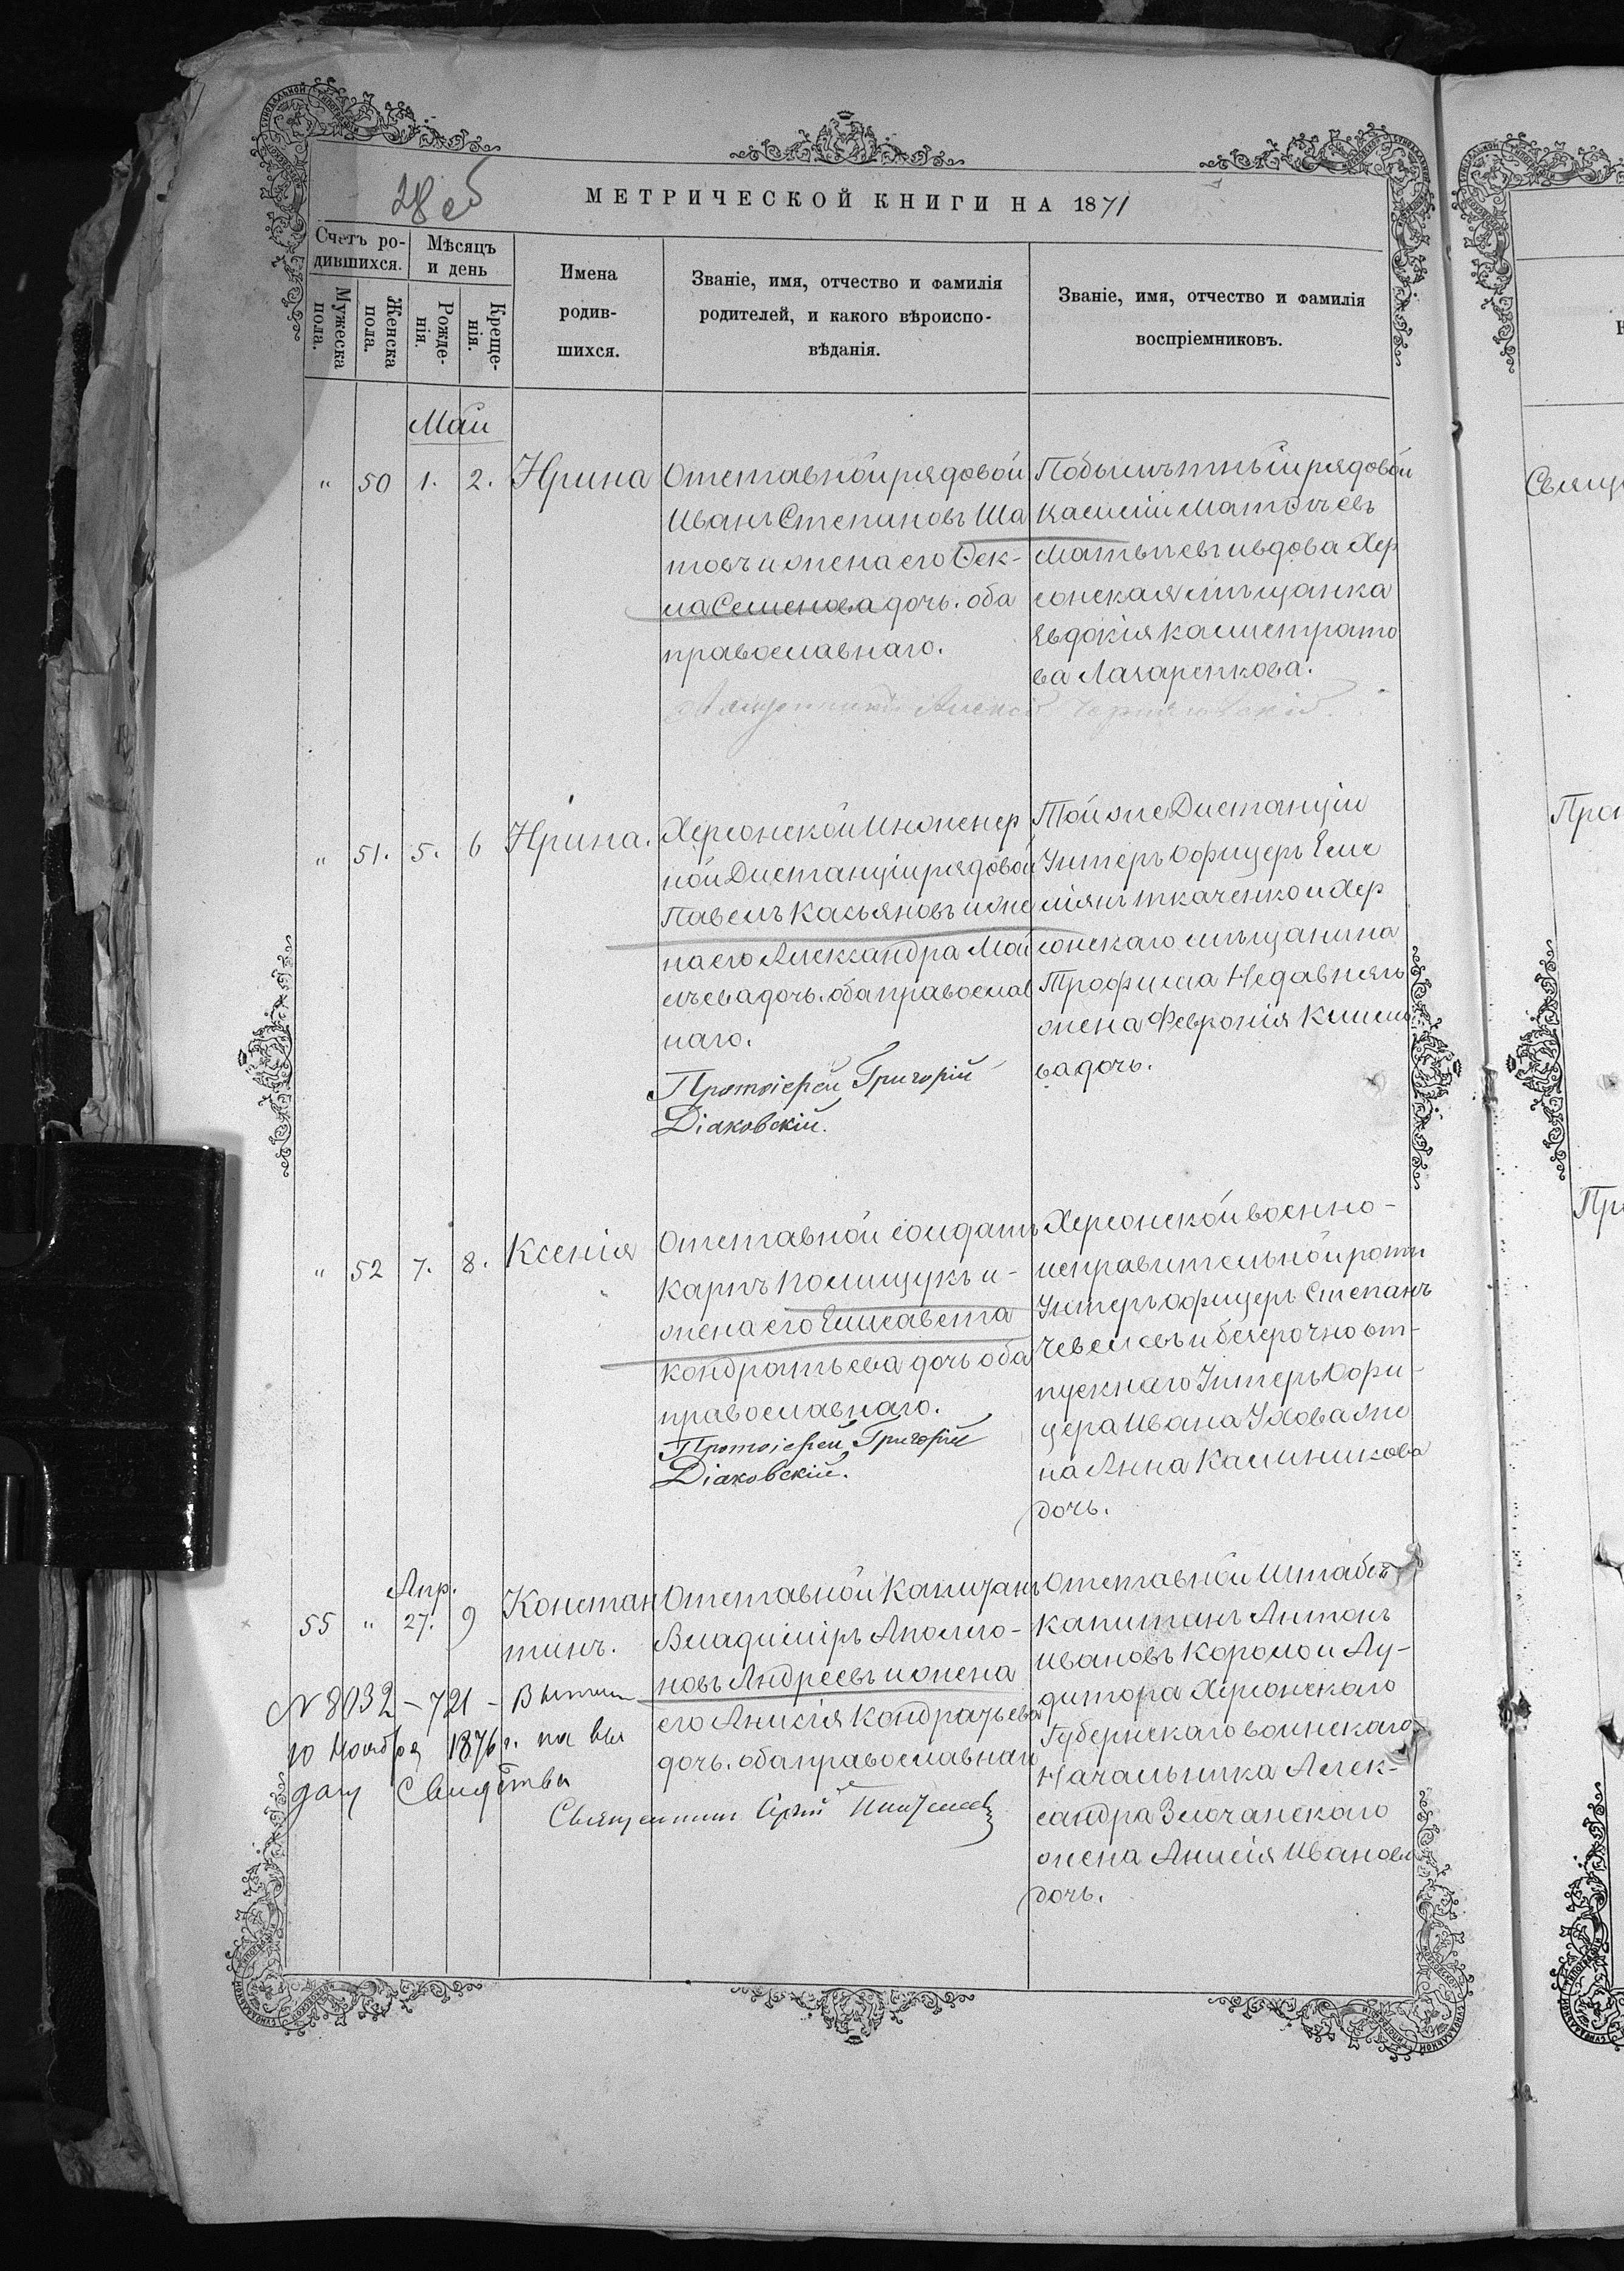 28 об
МЕТРИЧЕСКОЙ КНИГИ НА 1871
Счетъ ро-
дившихся.
Мѣсяцъ
и день
Мужеска
пола.
Женска
пола.
Рожде-
нія.
Креще-
нія.
Имена
родив-
шихся.
Званіе, имя, отчество и фамилія
родителей, и какого вѣроиспо-
вѣданія.
Званіе, имя, отчество и фамилія
воспріемниковъ.
Май
" 50 1. 2. Ирина
Отставной рядовой
Иванъ Степановъ Ша
товъ и жена его Фек-
ла Семенова дочь. оба
православнаго.
рядовой
Матвѣевъ
и вдова Хер
сонская мѣщанка
Евдокія Калистрато
ва Лазаренкова.
" 51. 5. 6 Ирина.
Херсонской Инженер
ной Дистанціи рядовой
Павелъ Касьяновъ и же
на его Александра Мои
сѣева дочь. оба православ
наго.
Протоіерей Григорій
Діаковскій.
Той же Дистанціи
Унтеръ Офицеръ Еме
ліянъ Ткаченко и Хер
сонскаго мѣщанина
Трофима
жена Февронія Климо
ва дочь.
" 52 7. 8. Ксенія
Отставной солдатъ
Карпъ Полищукъ и-
жена его Елисавета
Кондратьева дочь оба
православнаго.
Протоіерей Григорій
Діаковскій.
Херсонской военно-
исправительной роты
Унтеръ Офицеръ Степанъ
и безсрочно от-
пускнаго Унтеръ Офи-
цера Ивана Ухова же
на Анна Калиникова
дочь.
Апр.
55 " 27. 9 Констан
тинъ.
Отставной Капитанъ
Владиміръ Аполло-
новъ Андреевъ и жена
его Анисія Кондратьева
дочь. оба православнаго
Священникъ
Отставной Штабсъ
Капитанъ Антонъ
Ивановъ Король и Ау-
дитора Херсонскаго
Губернскаго воинскаго
Начальника Алек-
сандра
жена Анисія Иванова
дочь.
N 8032 - 721 -
10 Ноября 1876 г. на вы
дачу Свидѣтства